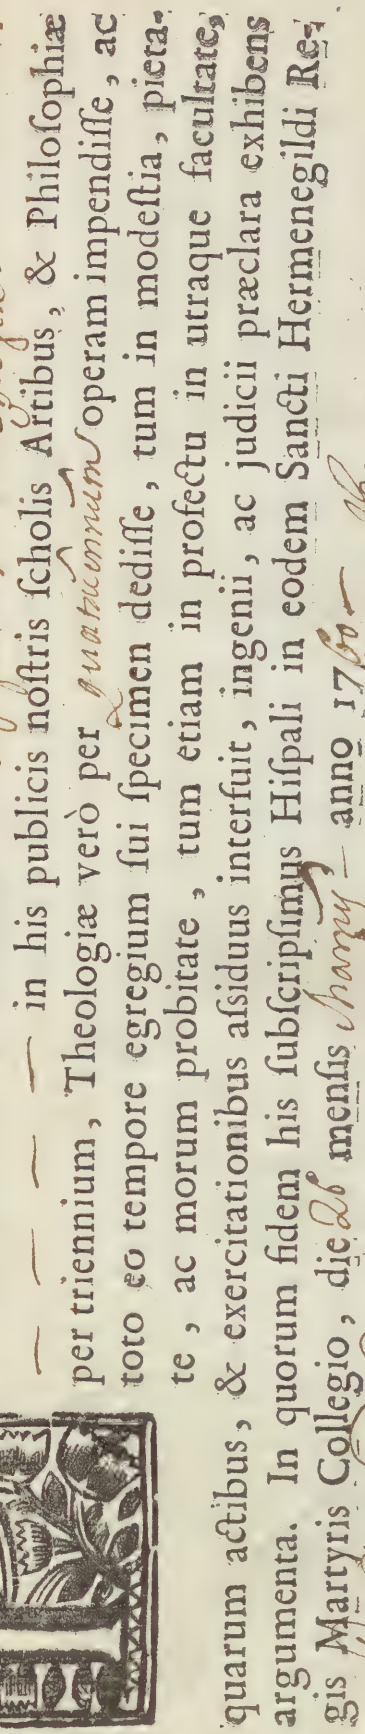 in his publicis noſtris ſcholis Artibus, & Philoſophiæ
per triennium, Theologiæ verò per quatriennium operam impendiſſe, ac
toto eo tempore egregium ſui ſpecimen dediſſe, tum in modeſtia, pieta-
te, ac morum probitate, tum etiam in profectu in utraque facultate,
quarum actibus, & exercitationibus aſsiduus interfuit, ingenii, ac judicii præclara exhibens
argumenta. In quorum fidem his ſubſcripſimus Hiſpali in eodem Sancti Hermenegildi Re-
gis Martyris Collegio, die menſis anno 1760